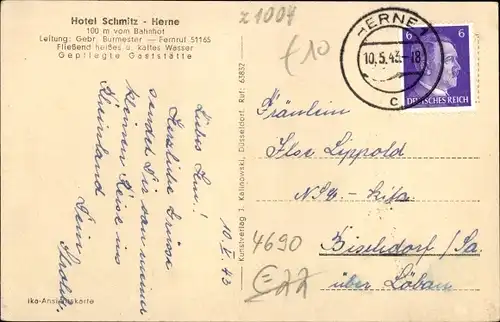 Hotel Schmitz - Herne
100 m vom Bahnhof
Leitung: Gebr. Burmester — Fernruf 51165
Fließend heißes u. kaltes Wasser
Gepflegte Gaststätte
z1007
£10
HERNE
10.5.43-18
c
6 6
DEUTSCHES REICH
10 V. 43
Herzliche Grüsse
sendet Dir von meiner
kleinen Reise ins
Rheinland
Dein
Ika-Ansichtskarte
Kunstverlag J. Kalinowski, Düsseldorf. Ruf: 63832
Fräulein
Ilse Lippold
Bischdorf / Sa.
über Löbau
4690
E22